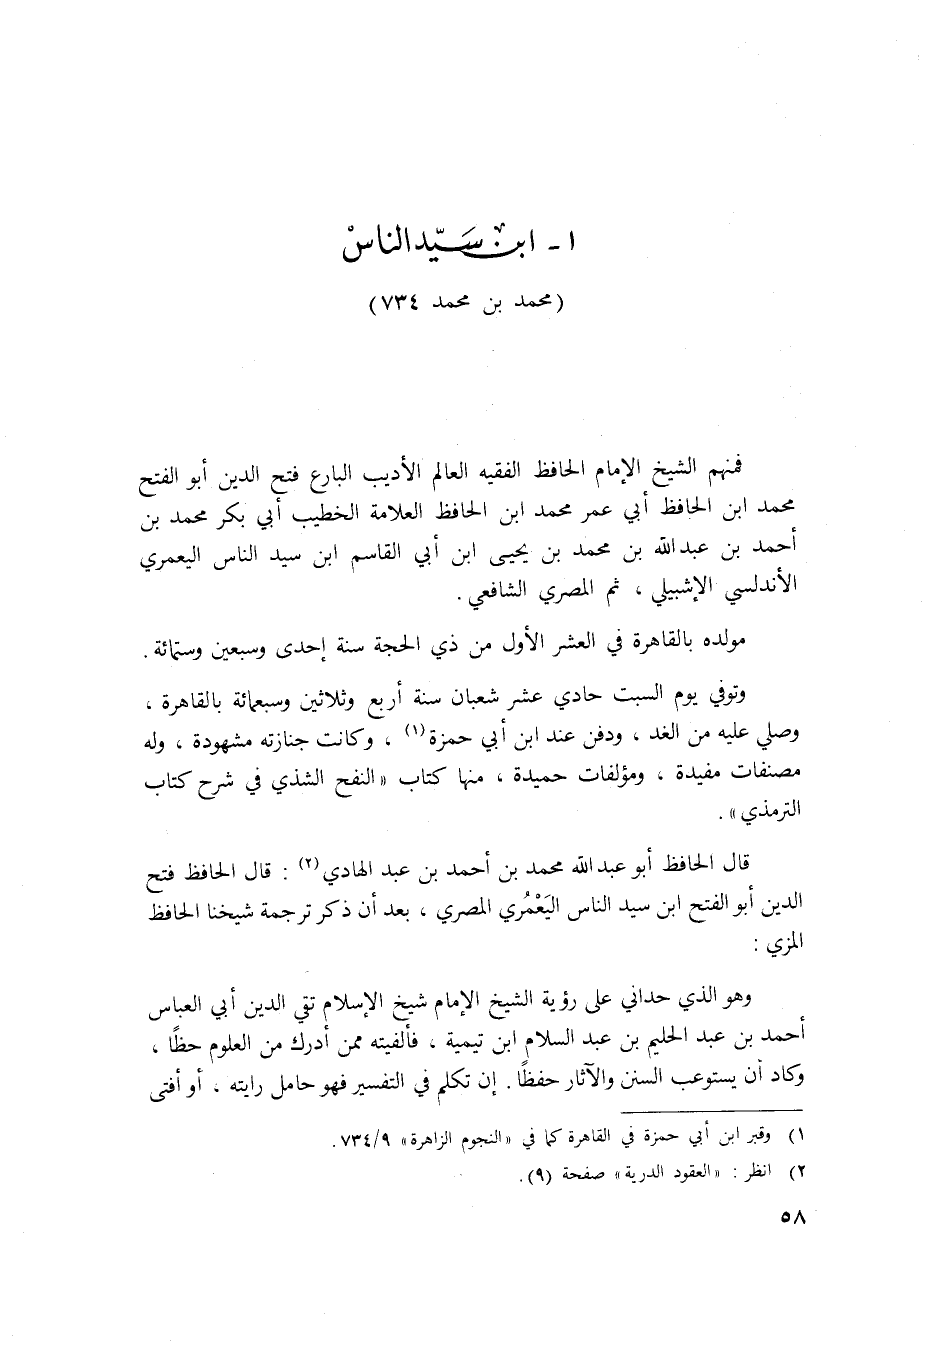 ١ - ابن سَيّد الناسْ
(محمد بن محمد ٧٣٤)
فمنهم الشيخ الإمام الحافظ الفقيه العالم الأديب البارع فتح الدين أبو الفتح
محمد ابن الحافظ أبي عمر محمد ابن الحافظ العلامة الخطيب أبي بكر محمد بن
أحمد بن عبد الله بن محمد بن يحيى ابن أبي القاسم ابن سيد الناس اليعمري
الأندلسي الإشبيلي ، ثم المصري الشافعي .
مولده بالقاهرة في العشر الأول من ذي الحجة سنة إحدى وسبعين وستمائة .
وتوفي يوم السبت حادي عشر شعبان سنة أربع وثلاثين وسبعمائة بالقاهرة ،
وصلي عليه من الغد ، ودفن عند ابن أبي حمزة(١) ، وكانت جنازته مشهودة ، وله
مصنفات مفيدة ، ومؤلفات حميدة ، منها كتاب «النفح الشذي في شرح كتاب
الترمذي» .
قال الحافظ أبو عبد الله محمد بن أحمد بن عبد الهادي(٢) : قال الحافظ فتح
الدين أبو الفتح ابن سيد الناس اليَعْمُري المصري ، بعد أن ذكر ترجمة شيخنا الحافظ
المزي :
وهو الذي حداني على رؤية الشيخ الإمام شيخ الإسلام تقي الدين أبي العباس
أحمد بن عبد الحليم بن عبد السلام ابن تيمية ، فألفيته ممن أدرك من العلوم حظًا ،
وكاد أن يستوعب السنن والآثار حفظًا . إن تكلم في التفسير فهو حامل رايته ، أو أفتى
١) وقبر ابن أبي حمزة في القاهرة كما في «النجوم الزاهرة» ٧٣٤/٩ .
٢) انظر : «العقود الدرية» صفحة (٩).
٥٨